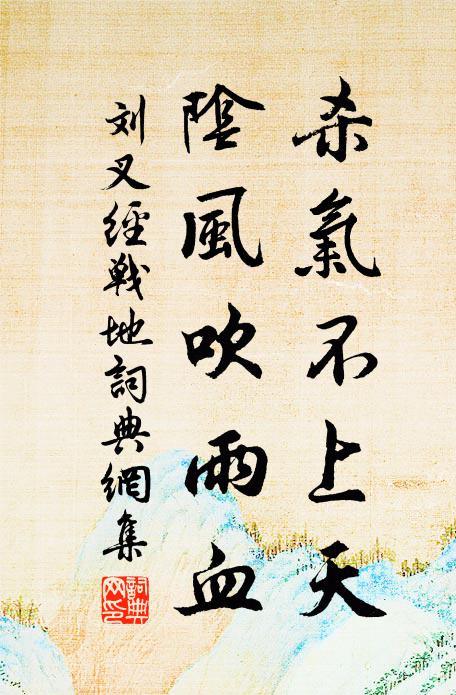 杀氣不上天
陰風吹雨血
刘叉經戰地詞典網集
詞典网印